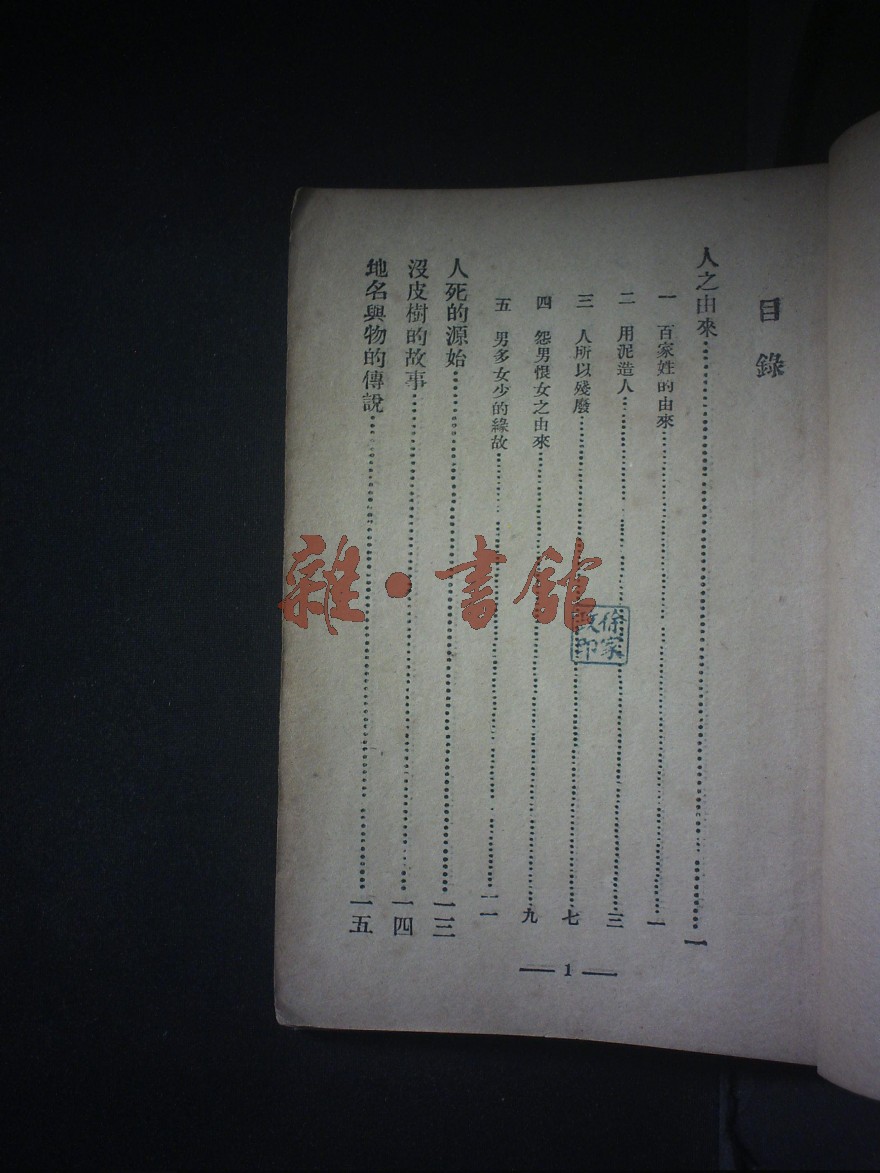 目錄
人之由來⋯⋯一
一 百家姓的由來⋯⋯一
二 用泥造人⋯⋯三
三 人所以殘廢⋯⋯七
四 怨男恨女之由來⋯⋯九
五 男多女少的緣故⋯⋯一一
人死的源始⋯⋯一三
沒皮樹的故事⋯⋯一四
地名與物的傳說⋯⋯一五
— 1 —
雜·書館
家
印